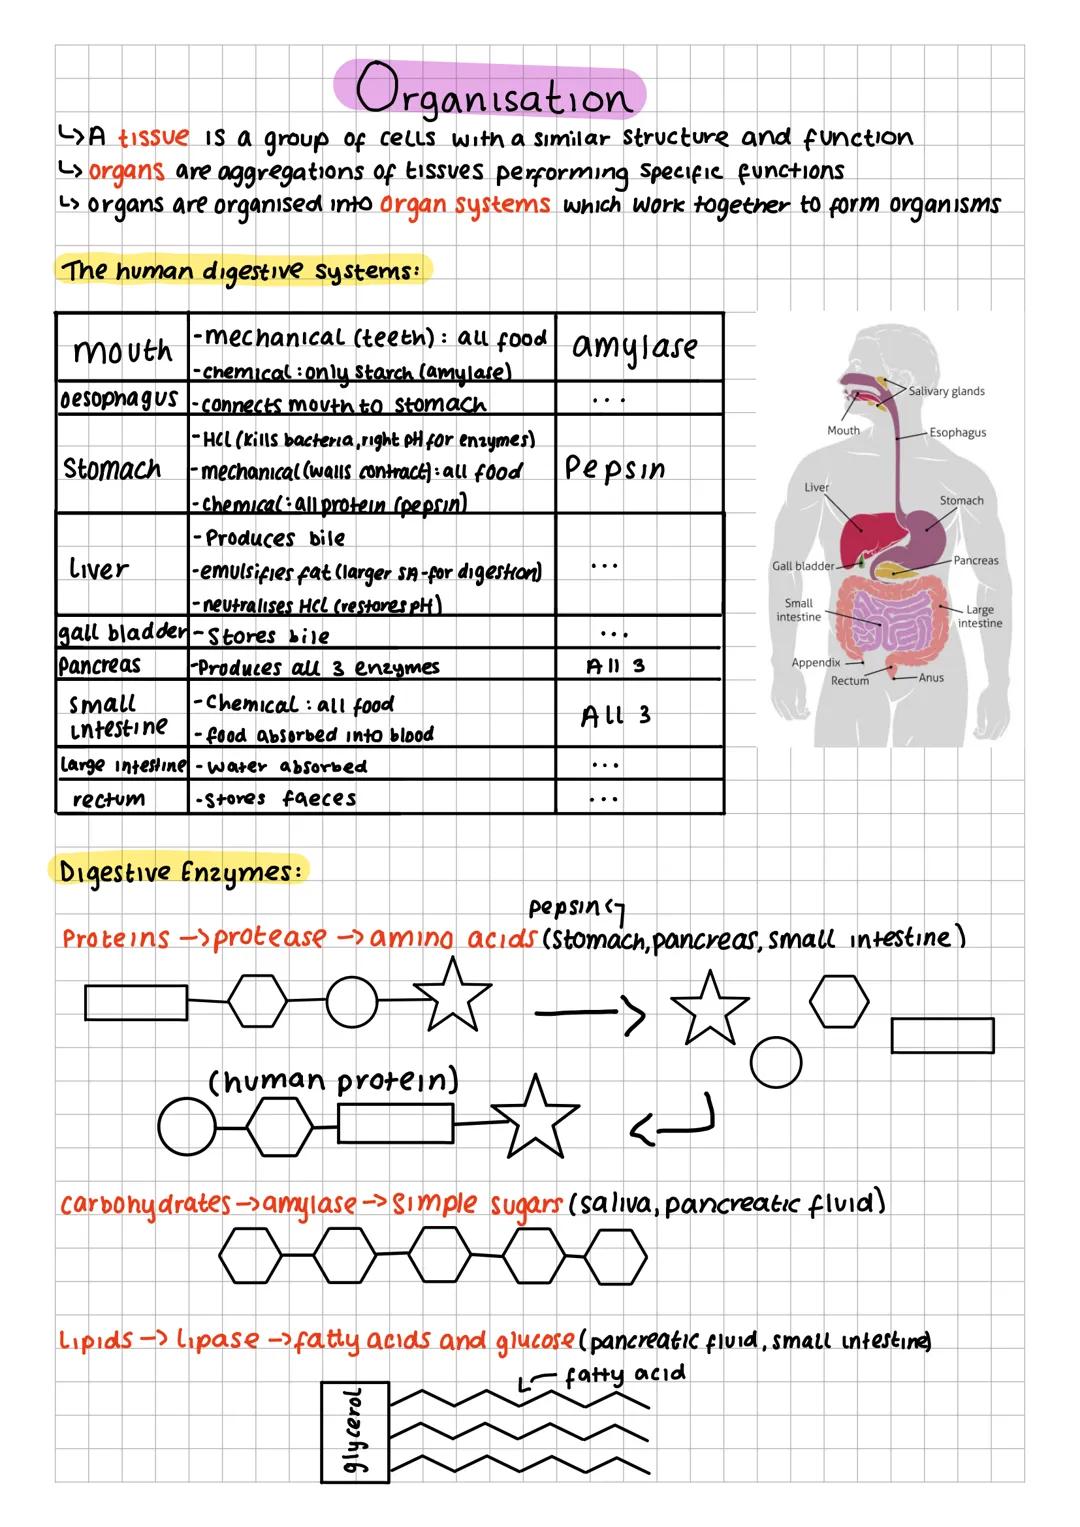 Organisation
↳A tissue is a group of cells with a similar structure and function
↳ organs are aggregations of tissues performing specific functions
↳ organs are organised into organ systems which work together to form organisms
The human digestive systems:
mouth
-mechanical (teeth): all food
-chemical: only starch (amylase)
amylase
oesophagus
-connects mouth to stomach
...
Stomach
-HCl (kills bacteria, right pH for enzymes)
-mechanical (walls contract): all food
-chemical: all protein (pepsin)
Pepsin
liver
-Produces bile
-emulsifies fat (larger SA-for digestion)
-neutralises HCl (restores pH)
...
gall bladder
-Stores bile
...
Pancreas
-Produces all 3 enzymes
All 3
small
intestine
-Chemical: all food
-food absorbed into blood
All 3
large intestine
-water absorbed
...
rectum
-stores faeces
...
Salivary glands
Mouth
Esophagus
Liver
Stomach
Gall bladder
Pancreas
Small
intestine
Large
intestine
Appendix
Rectum
Anus
Digestive Enzymes:
pepsin
Proteins → protease → amino acids (stomach, pancreas, small intestine)
(human protein)
carbohydrates → amylase → simple sugars (saliva, pancreatic fluid)
Lipids → lipase → fatty acids and glucose (pancreatic fluid, small intestine)
fatty acid
glycerol